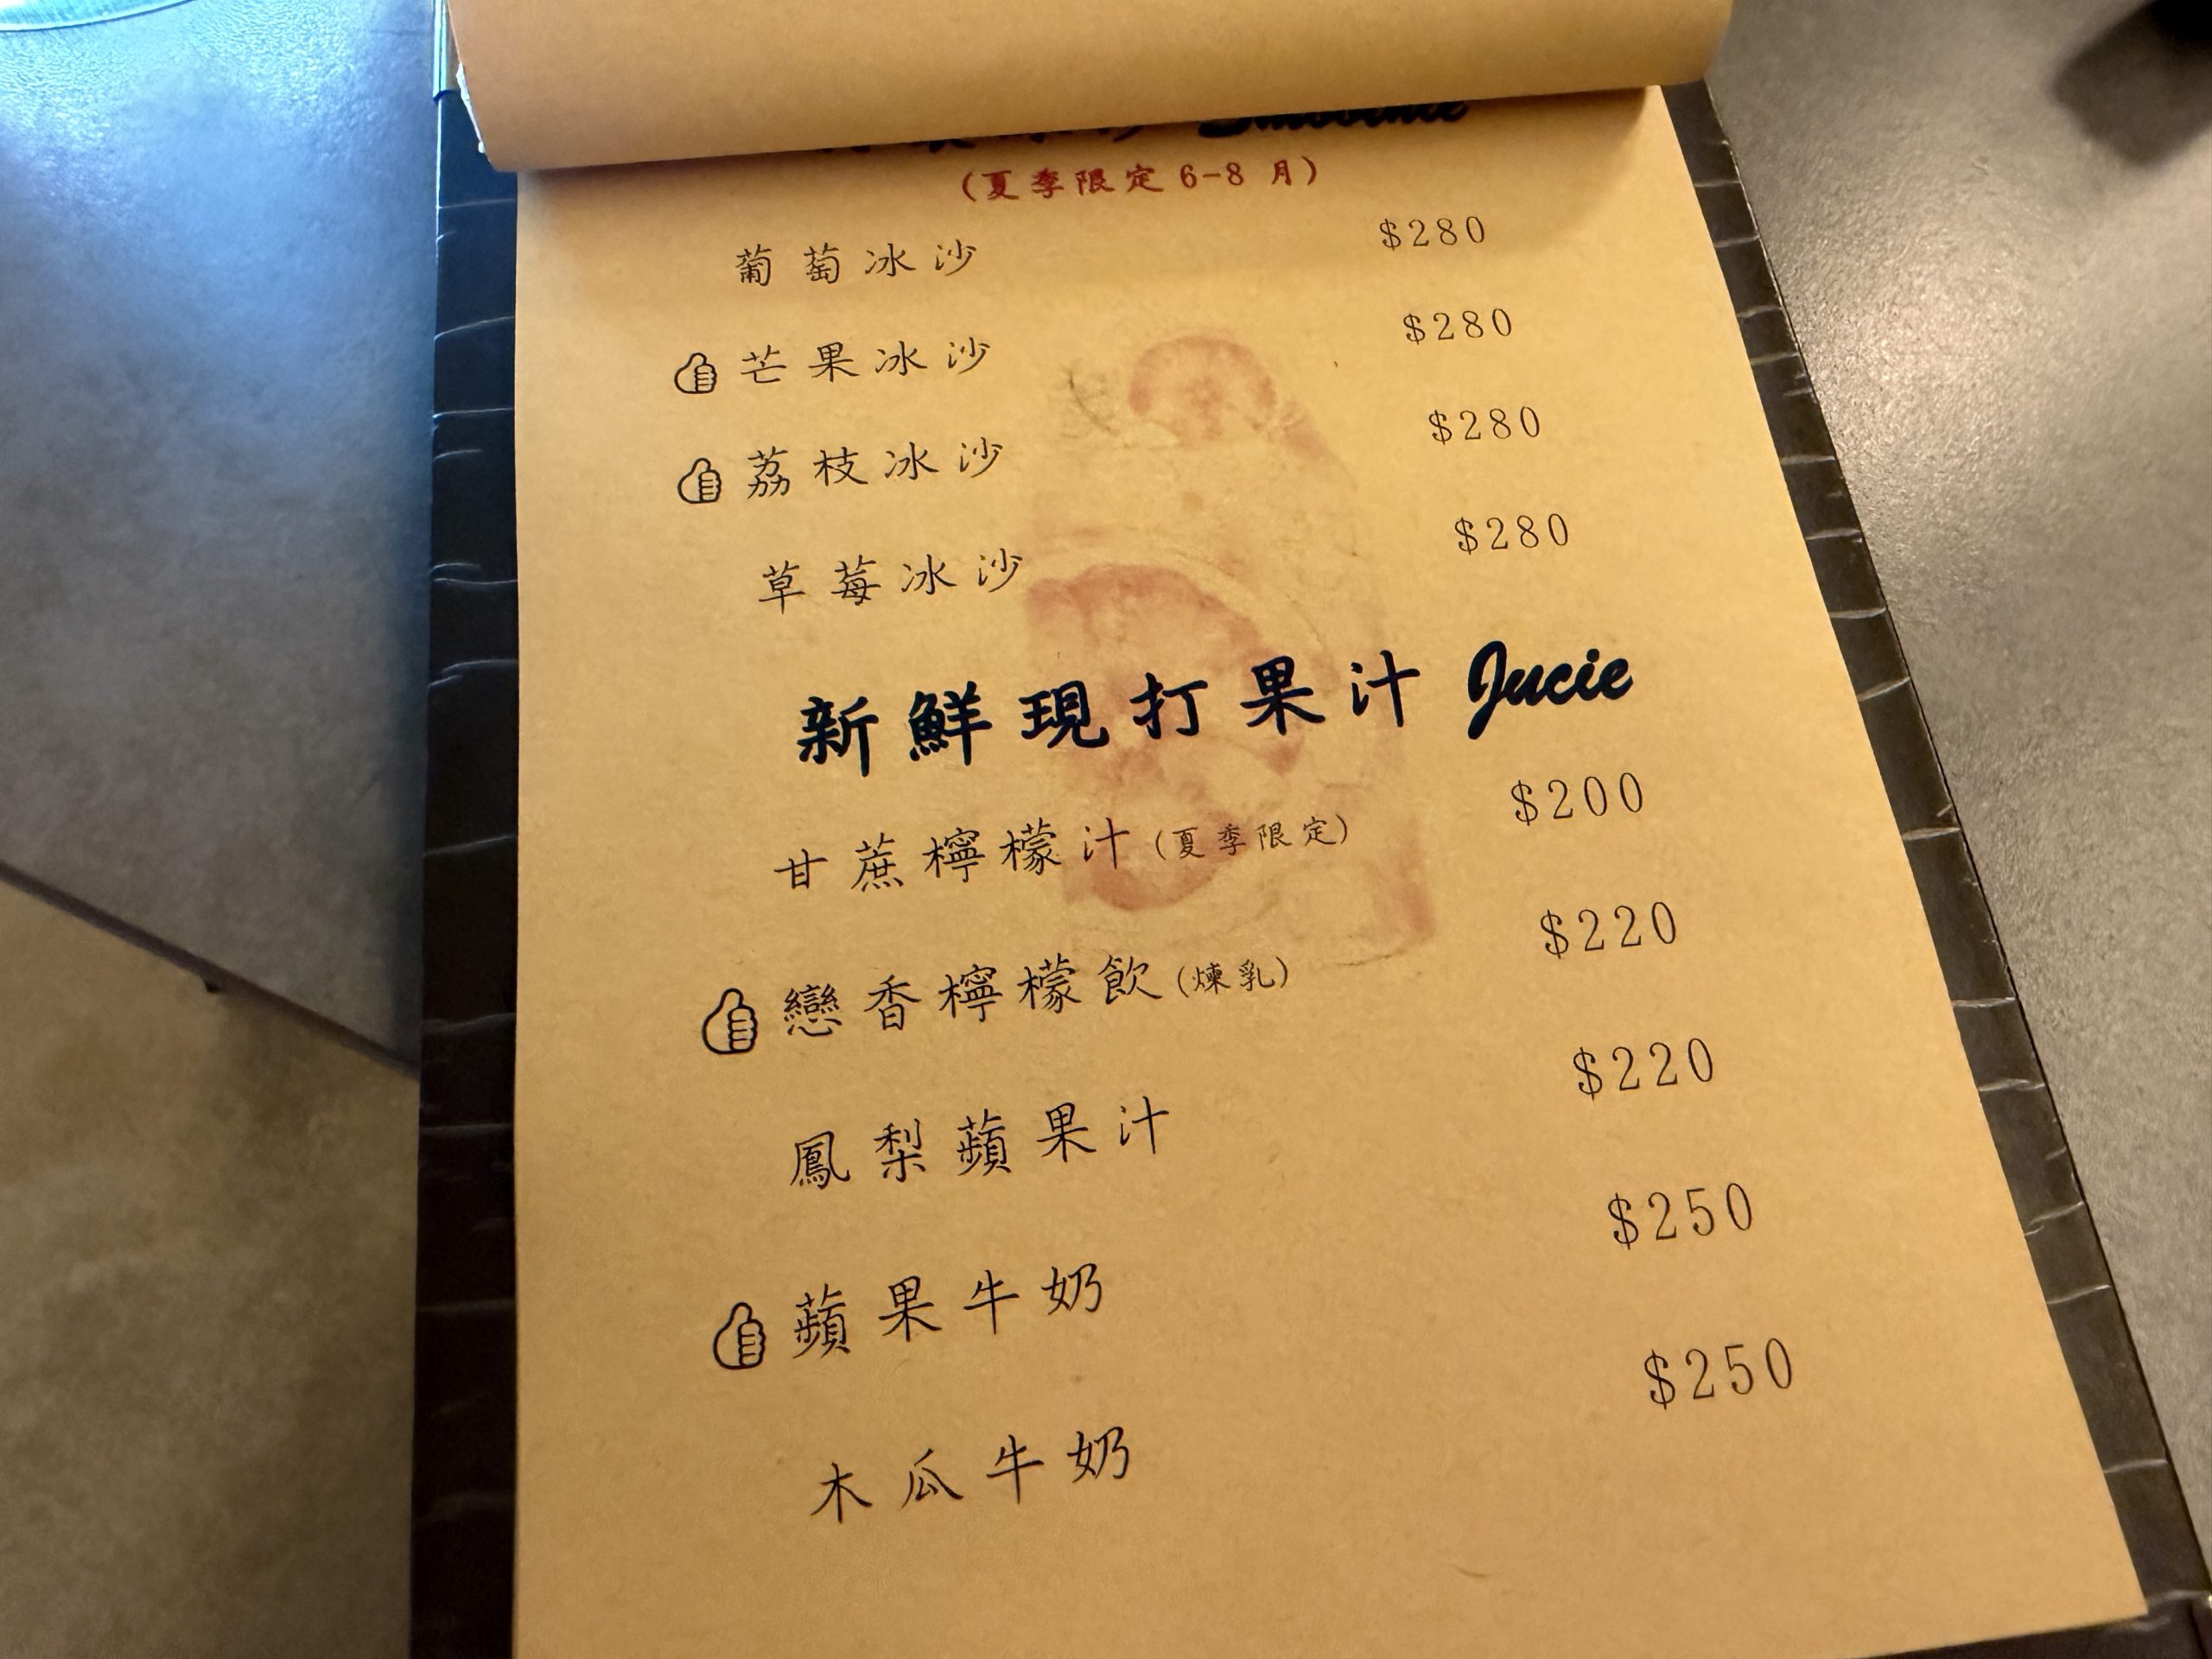 (夏季限定6-8 月)
葡萄冰沙 $280
芒果冰沙 $280
荔枝冰沙 $280
草莓冰沙 $280
新鮮現打果汁 Jucie
甘蔗檸檬汁(夏季限定) $200
戀香檸檬飲(煉乳) $220
鳳梨蘋果汁 $220
蘋果牛奶 $250
木瓜牛奶 $250